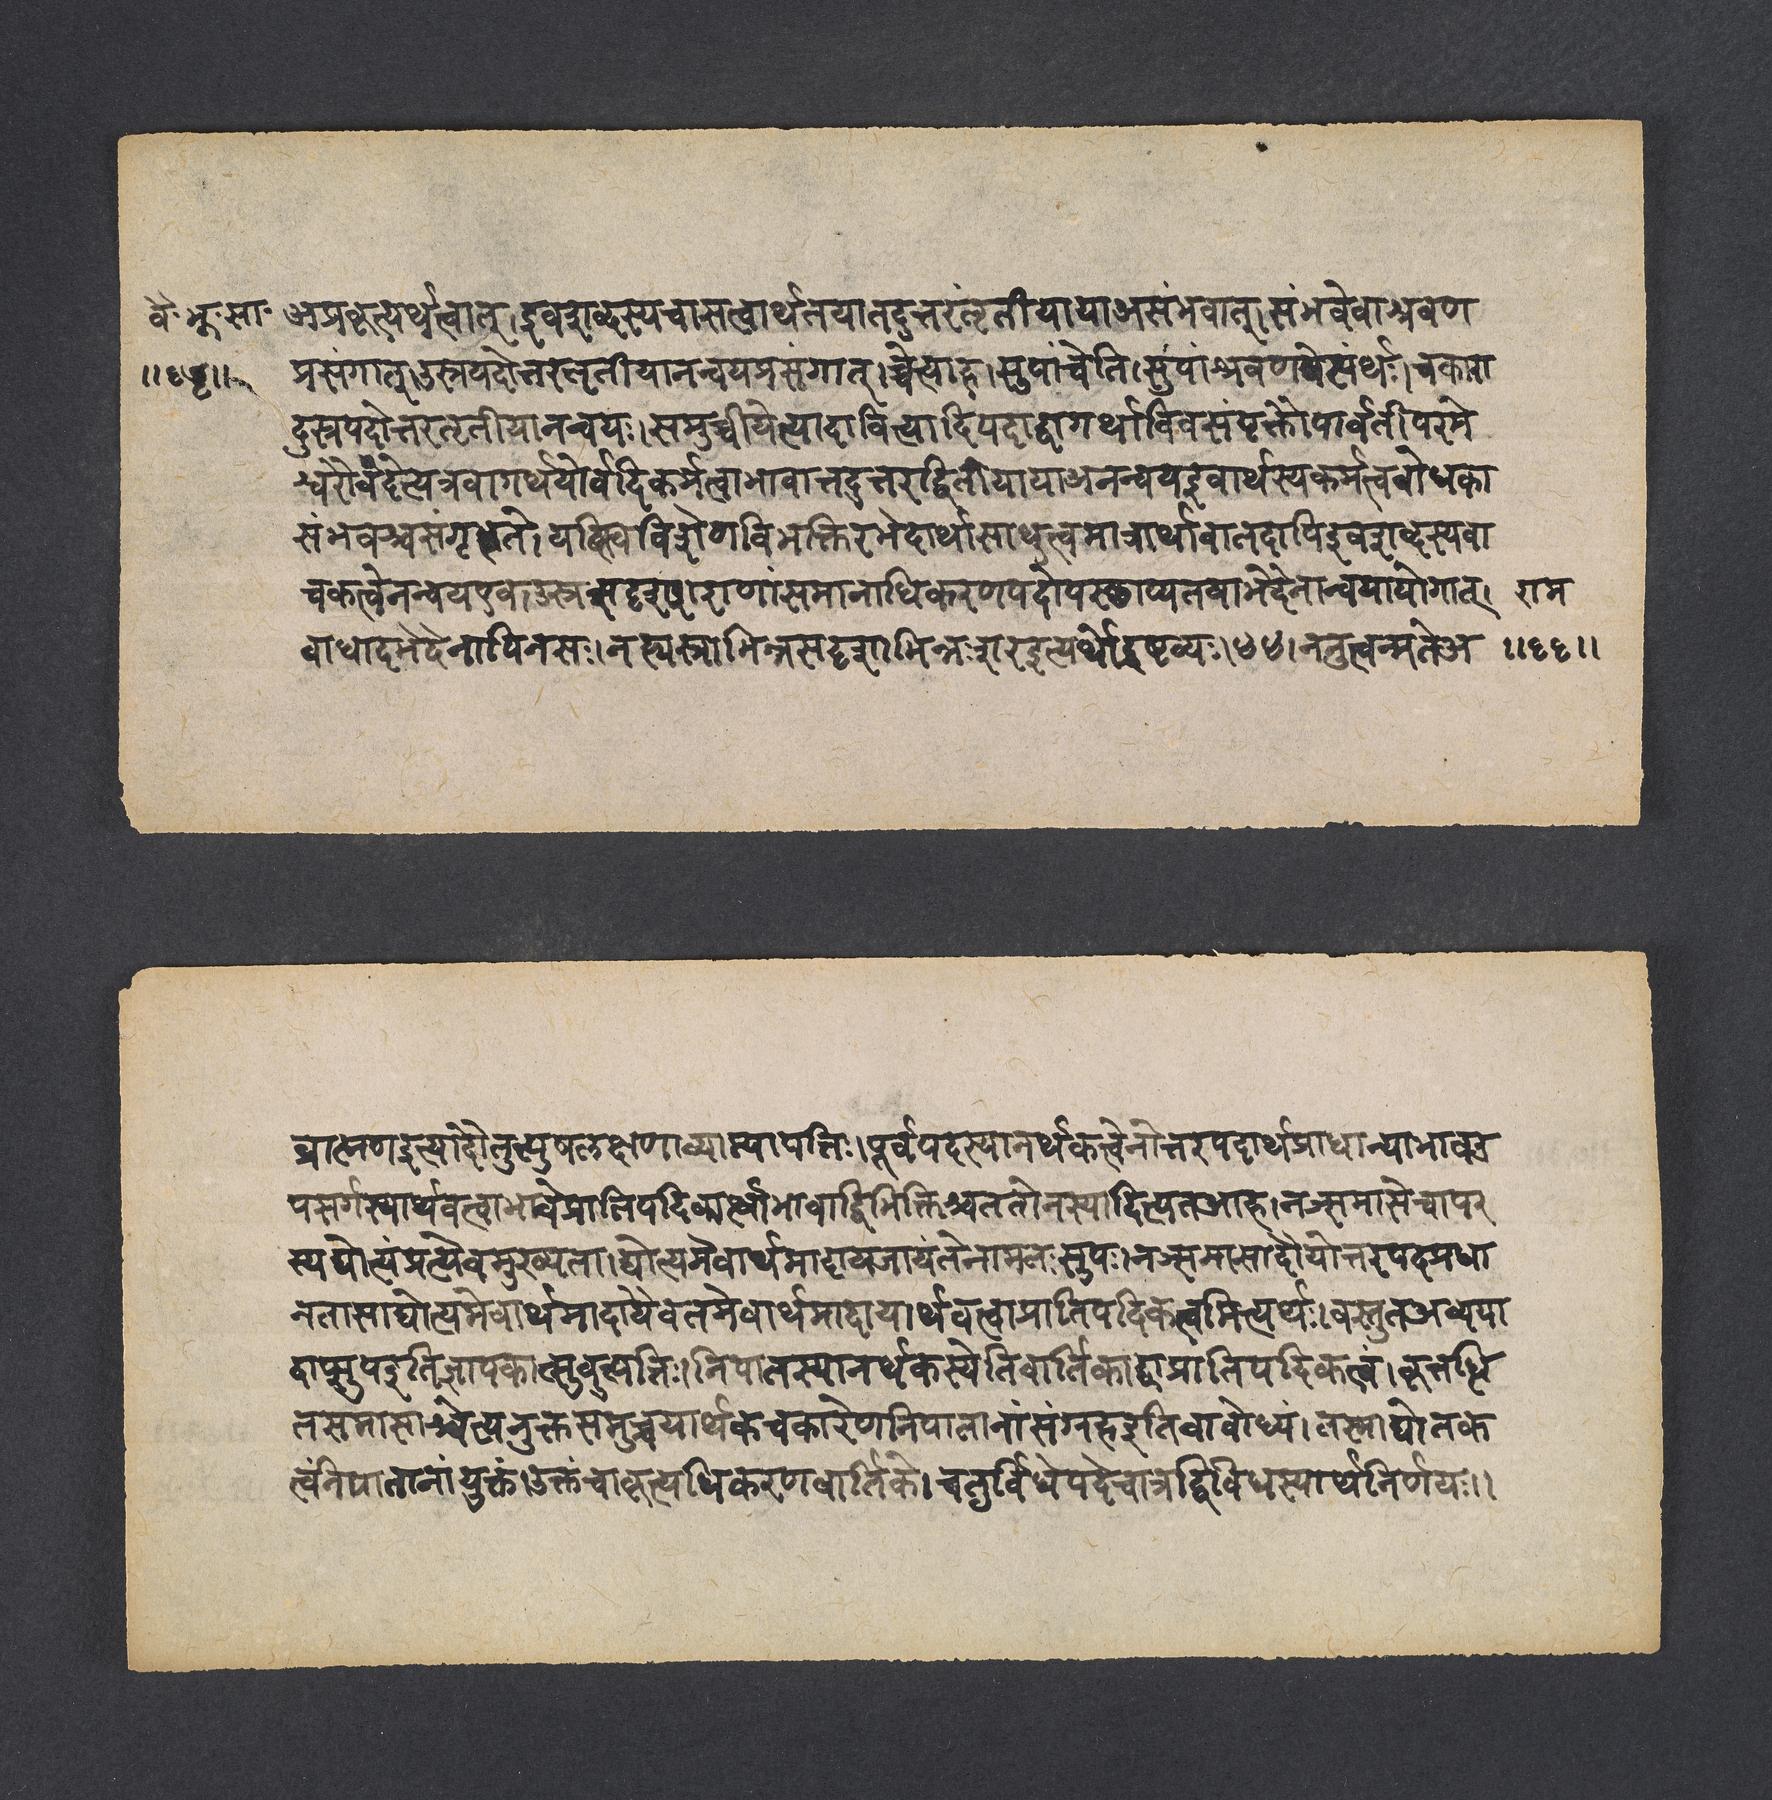 वै॰ भू॰ सा॰
॥६६॥
अप्रकृत्यर्थत्वात्।इवशब्दस्यचासत्वार्थतयातदुत्तरंतृतीयायाअसंभवात्।संभवेवाश्रवण
प्रसंगात्।उस्रपदोत्तरतृतीयानन्वयप्रसंगात्।च्चेत्याह।सुपांचेति।सुपांश्रवणंचेत्यर्थः।चकारा
दुस्रपदोत्तरतृतीयानन्वयः।समुच्चीयेत्यादावित्यादिपदाद्वागर्थाविवसंपृक्तौपार्वतीपरमे
श्वरौवंदेत्यत्रवागर्थयोर्वदिकर्मत्वाभावात्तदुत्तरद्वितीयायाअनन्वयइवार्थस्यकर्मत्वबोधका
संभवश्चसंगृह्यते।यत्त्विविशेणविभक्तिरभेदार्थासाधुत्वमात्रार्थावातदापिइवशब्दस्यवा
चकत्वेनन्वयएव।उस्रसदृशशराणांसमानाधिकरणपदोपस्छाप्यतवाभेदेनान्वयायोगात्।
राम
वाधादभेदेनापिनसः।नह्युस्त्राभिन्नसदृशाभिन्नःशरइत्यर्थोद्रष्टव्यः।५४।ननुत्वन्मतेअ
॥६६॥
ब्राह्मणइत्यादौतत्पुषलक्षणाव्याप्त्यापत्तिः।पूर्वपदस्यानर्थकत्वेनोत्तरपदार्थप्राधान्याभावउ
पसर्गस्यार्थवत्वाभावेप्रातिपदिकार्त्थाभावाद्विभक्तिश्चततोनस्यादित्यतआह।नञ्समासेचापर
स्यद्योत्यंप्रत्येवमुख्यता।द्योत्यमेवार्थमादायजायंतेनामतःसुपः।नञ्समासादौयोत्तरपदप्रधा
नतासाद्योत्यमेवार्थमादायैवतमेवार्थमादायार्थवत्वाप्रातिपदिकत्वमित्यर्थः।वस्तुतअव्यया
दाप्सुपइतिज्ञापकात्सुबुत्पत्तिः।निपातस्यानर्थकस्येतिवार्तिकाद्वाप्रातिपदिकत्वं।कृत्तद्धि
तसमासाश्चेत्यनुक्तसमुच्चयार्थकचकारेणनिपातानांसंग्रहइतिवावोध्यं।तस्माद्योतक
त्वंनिपातानांयुक्तं।उक्तंचाकृत्यधिकरणवार्तिके।चतुर्विधेपदेचात्रद्विविधस्यार्थनिर्णयः।।